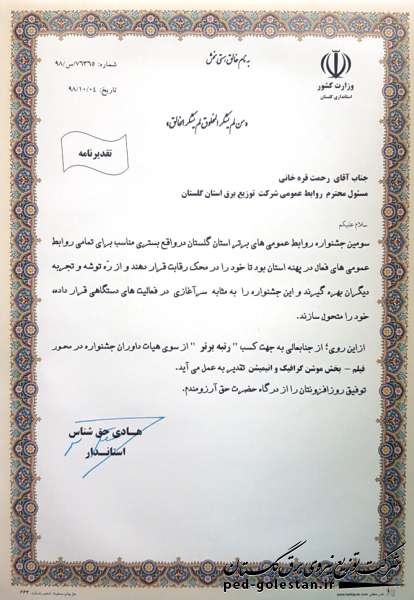 به نام خالق هستی بخش
شماره: ۹۸/س/۷۶۳۶۵
تاریخ: ۹۸/۱۰/۰۴
وزارت کشور
استانداری گلستان
«من لم یشکر المخلوق لم یشکر الخالق»
تقدیرنامه
جناب آقای رحمت قره خانی
مسئول محترم روابط عمومی شرکت توزیع برق استان گلستان
سلام علیکم
سومین جشنواره روابط عمومی های برتر استان گلستان درواقع بستری مناسب برای تمامی روابط
عمومی های فعال در پهنه استان بود تا خود را در محک رقابت قرار دهند و از ره توشه و تجربه
دیگران بهره گیرند و این جشنواره را به مثابه سرآغازی در فعالیت های دستگاهی قرار داده،
خود را متحول سازند.
ازاین روی؛ از جنابعالی به جهت کسب "رتبه برتر" از سوی هیات داوران جشنواره در محور
فیلم – بخش موشن گرافیک و انیمیشن تقدیر به عمل می آید.
توفیق روزافزونتان را از درگاه حضرت حق آرزومندم.
هادی حق شناس
استاندار
شرکت توزیع نیروی برق گلستان
ped-golestan.ir